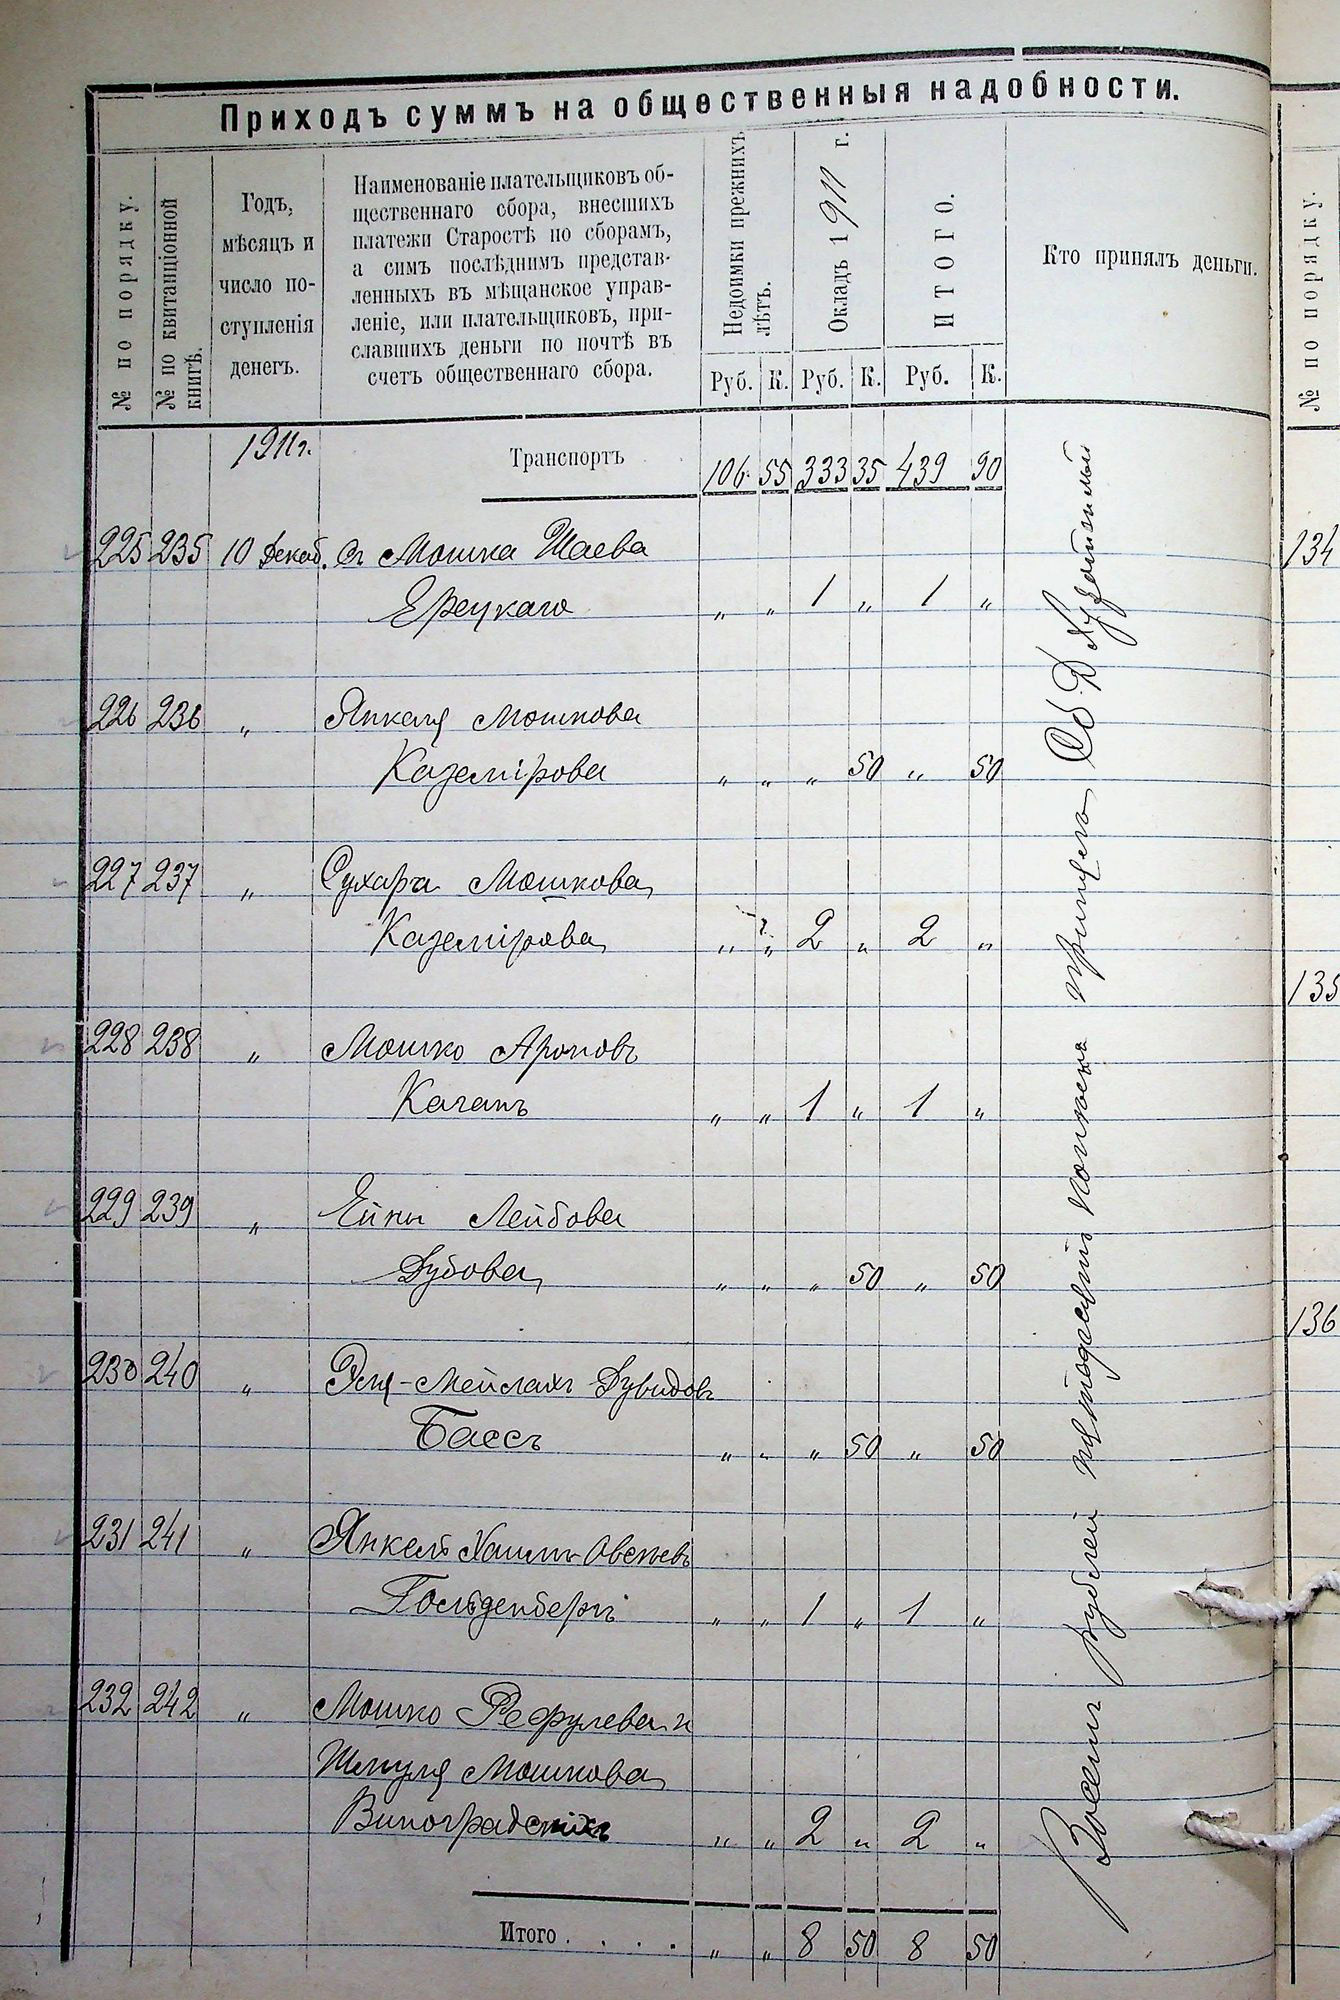 Приходъ суммъ на общественныя надобности.
№ по порядку.
№ по квитанціонной книгѣ.
Годъ,
мѣсяцъ и
число по-
ступленія
денегъ.
Наименованіе плательщиковъ об-
щественнаго сбора, внесшихъ
платежи Старостѣ по сборамъ,
а симъ послѣднимъ представ-
ленныхъ въ мѣщанское управ-
леніе, или плательщиковъ, при-
славшихъ деньги по почтѣ въ
счетъ общественнаго сбора.
Недоимки прежнихъ лѣтъ.
Окладъ 1911 г.
ИТОГО.
Кто принялъ деньги.
Руб. К. Руб. К. Руб. К.
1911 г. Транспортъ 106 55 333 35 439 90
225 235 10 Декаб. Съ Мошка Шаева
Ерецкаго „ „ 1 „ 1 „
226 236 „ Янкеля Мошкова
Каземірова „ „ „ 50 „ 50
227 237 „ Сухара Мошкова
Каземірова „ „ 2 „ 2 „
228 238 „ Мошко Ароновъ
Каганъ „ „ 1 „ 1 „
229 239 „ Ейны Лейбова
Дубова „ „ „ 50 „ 50
230 240 „ Эля-Мейлахъ Дувидовъ
Бассъ „ „ „ 50 „ 50
231 241 „ Янкель Хаимъ Овсеевъ
Гольденбергъ „ „ 1 „ 1 „
232 242 „ Мошко Рефулева и
Шмуля Мошкова
Виноградскихъ „ „ 2 „ 2 „
Итого . . . . „ „ 8 50 8 50
Восемь рублей пятьдесятъ копѣекъ принялъ
№ по порядку.
134
135
136